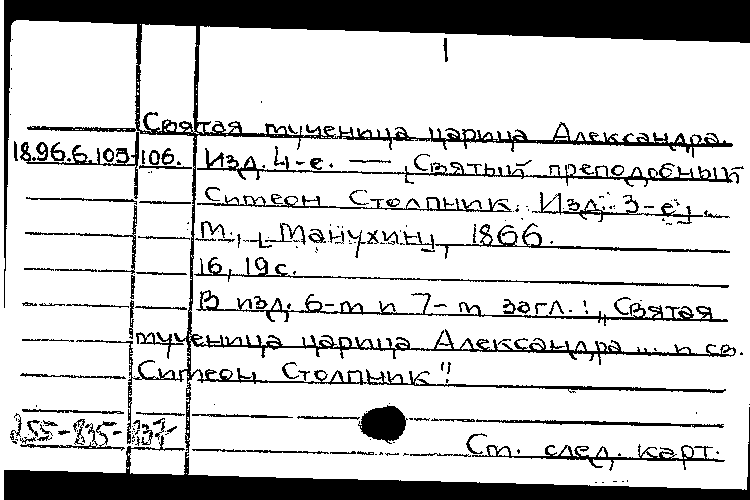 Святая мученица царица Александра.
18.96.6.105-106. Изд. 4-е. — [Святый преподобный
Симеон Столпник. Изд. 3-е].
М., [Манухин], 1866.
16, 19 с.
В изд. 6-м и 7-м загл.: „Святая
мученица царица Александра ... и св.
Симеон Столпник".
255-835-837
См. след. карт.